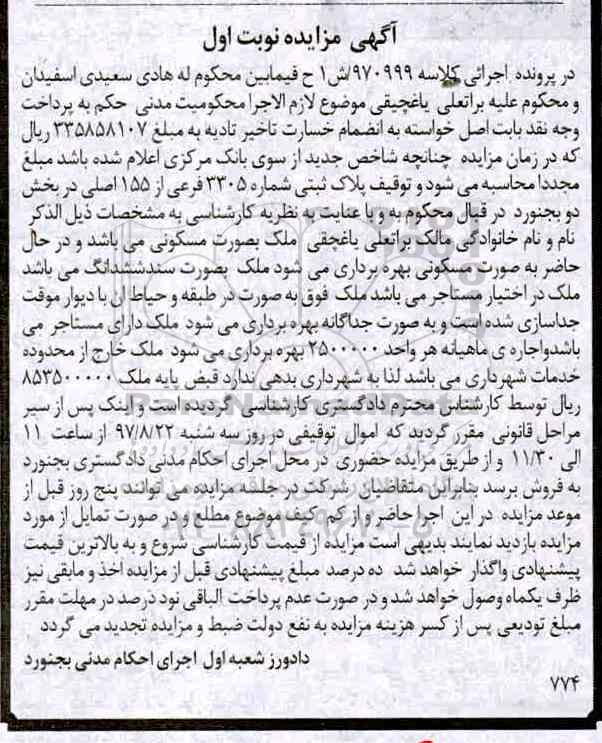 آگهی مزایده نوبت اول
در پرونده اجرائی کلاسه ۹۷۰۹۹۹/ش۱ ح فیمابین محکوم له هادی سعیدی اسفیدان
و محکوم علیه براتعلی یاغچیقی موضوع لازم الاجرا محکومیت مدنی حکم به پرداخت
وجه نقد بابت اصل خواسته به انضمام خسارت تاخیر تادیه به مبلغ ۳۳۵۸۵۸۱۰۷ ریال
که در زمان مزایده چنانچه شاخص جدید از سوی بانک مرکزی اعلام شده باشد مبلغ
مجددا محاسبه می شود و توقیف پلاک ثبتی شماره ۳۳۰۵ فرعی از ۱۵۵ اصلی در بخش
دو بجنورد در قبال محکوم به و با عنایت به نظریه کارشناسی به مشخصات ذیل الذکر
نام و نام خانوادگی مالک براتعلی یاغچقی ملک بصورت مسکونی می باشد و در حال
حاضر به صورت مسکونی بهره برداری می شود ملک بصورت سندششدانگ می باشد
ملک در اختیار مستاجر می باشد ملک فوق به صورت در طبقه و حیاط ان با دیوار موقت
جداسازی شده است و به صورت جداگانه بهره برداری می شود ملک دارای مستاجر می
باشدواجاره ی ماهیانه هر واحد ۲۵۰۰۰۰۰ بهره برداری می شود ملک خارج از محدوده
خدمات شهرداری می باشد لذا به شهرداری بدهی ندارد قبض پایه ملک ۸۵۳۵۰۰۰۰۰
ریال توسط کارشناس محترم دادگستری کارشناسی گردیده است و اینک پس از سیر
مراحل قانونی مقرر گردید که اموال توقیفی در روز سه شنبه ۹۷/۸/۲۲ از ساعت ۱۱
الی ۱۱/۳۰ و از طریق مزایده حضوری در محل اجرای احکام مدنی دادگستری بجنورد
به فروش برسد بنابراین متقاضیان شرکت در جلسه مزایده می توانند پنج روز قبل از
موعد مزایده در این اجرا حاضر و از کم کیف موضوع مطلع و در صورت تمایل از مورد
مزایده بازدید نمایند بدیهی است مزایده از قیمت کارشناسی شروع و به بالاترین قیمت
پیشنهادی واگذار خواهد شد ده درصد مبلغ پیشنهادی قبل از مزایده اخذ و مابقی نیز
ظرف یکماه وصول خواهد شد و در صورت عدم پرداخت الباقی نود درصد در مهلت مقرر
مبلغ تودیعی پس از کسر هزینه مزایده به نفع دولت ضبط و مزایده تجدید می گردد
دادورز شعبه اول اجرای احکام مدنی بجنورد
۷۷۴